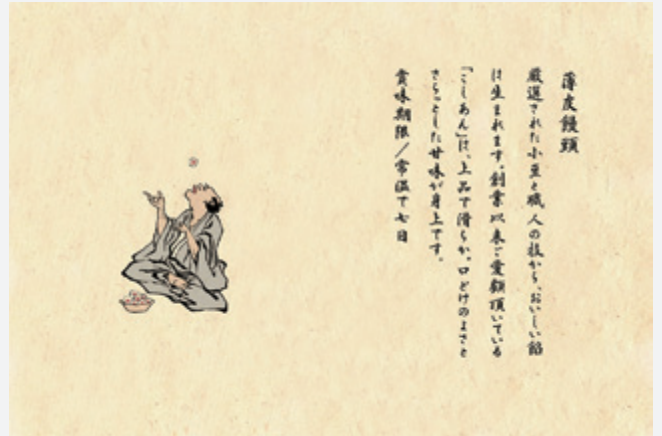 薄皮饅頭
厳選された小豆と職人の技から、おいしい餡
は生まれます。創業以来ご愛顧頂いている
「こしあん」は、上品で滑らか。口どけのよさと
さらっとした甘味が身上です。
賞味期限／常温で七日